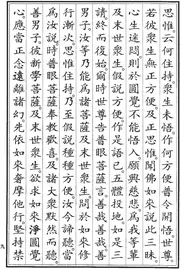 思惟云何住持衆生未悟作何方便普令開悟世尊
若彼衆生無正方便及正思惟聞佛如來說此三昧
心生迷悶則於圓覺不能悟入願興慈悲為我等輩
及末世衆生假說方便作是語已五體投地如是三
請終而復始爾時世尊告普眼菩薩言善哉善哉善
男子汝等乃能為諸菩薩及末世衆生問於如來修
行漸次思惟住持乃至假說種種方便汝今諦聽當
為汝說時普眼菩薩奉教歡喜及諸大衆默然而聽
善男子彼新學菩薩及末世衆生欲求如來淨圓覺
心應當正念遠離諸幻先依如來奢摩他行堅持禁
九